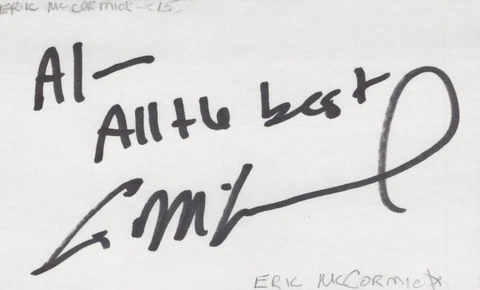 ERIC MCCORMICK -15
Al-
All the best
ERIC MCCORMICK